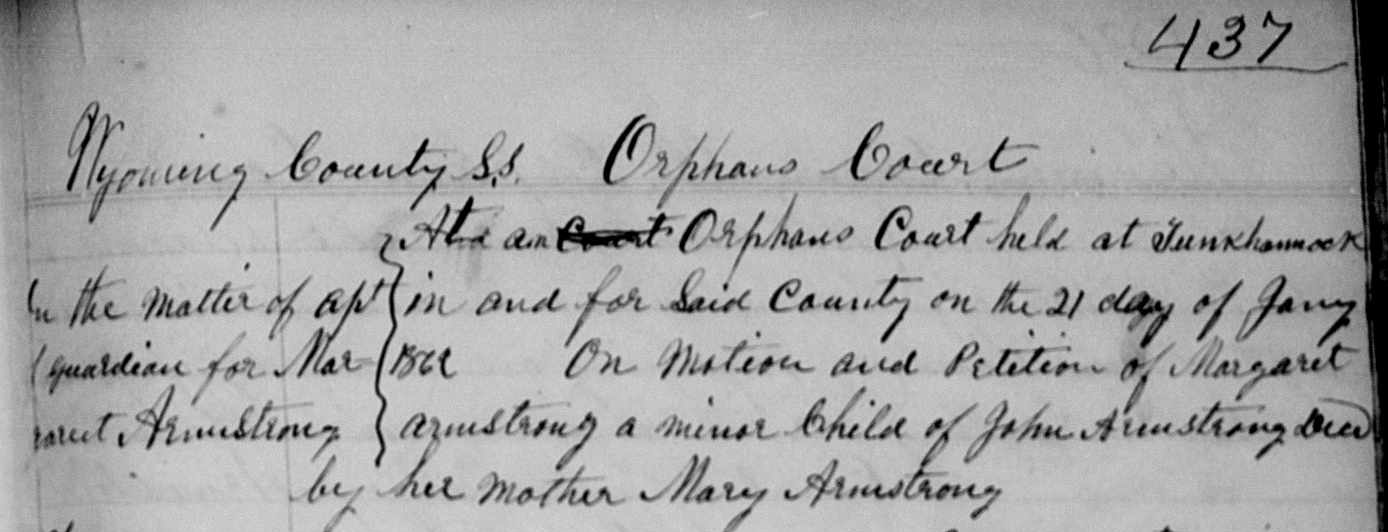 437
Wyoming County S.S. Orphans Court
At an Orphans Court held at Tunkhannock
In the matter of apt in and for Said County on the 21 day of Jany
guardian for Mar- On Motion and Petition of Margaret
garet Armstrong armstrong a minor Child of John Armstrong Decd
by her mother Mary Armstrong